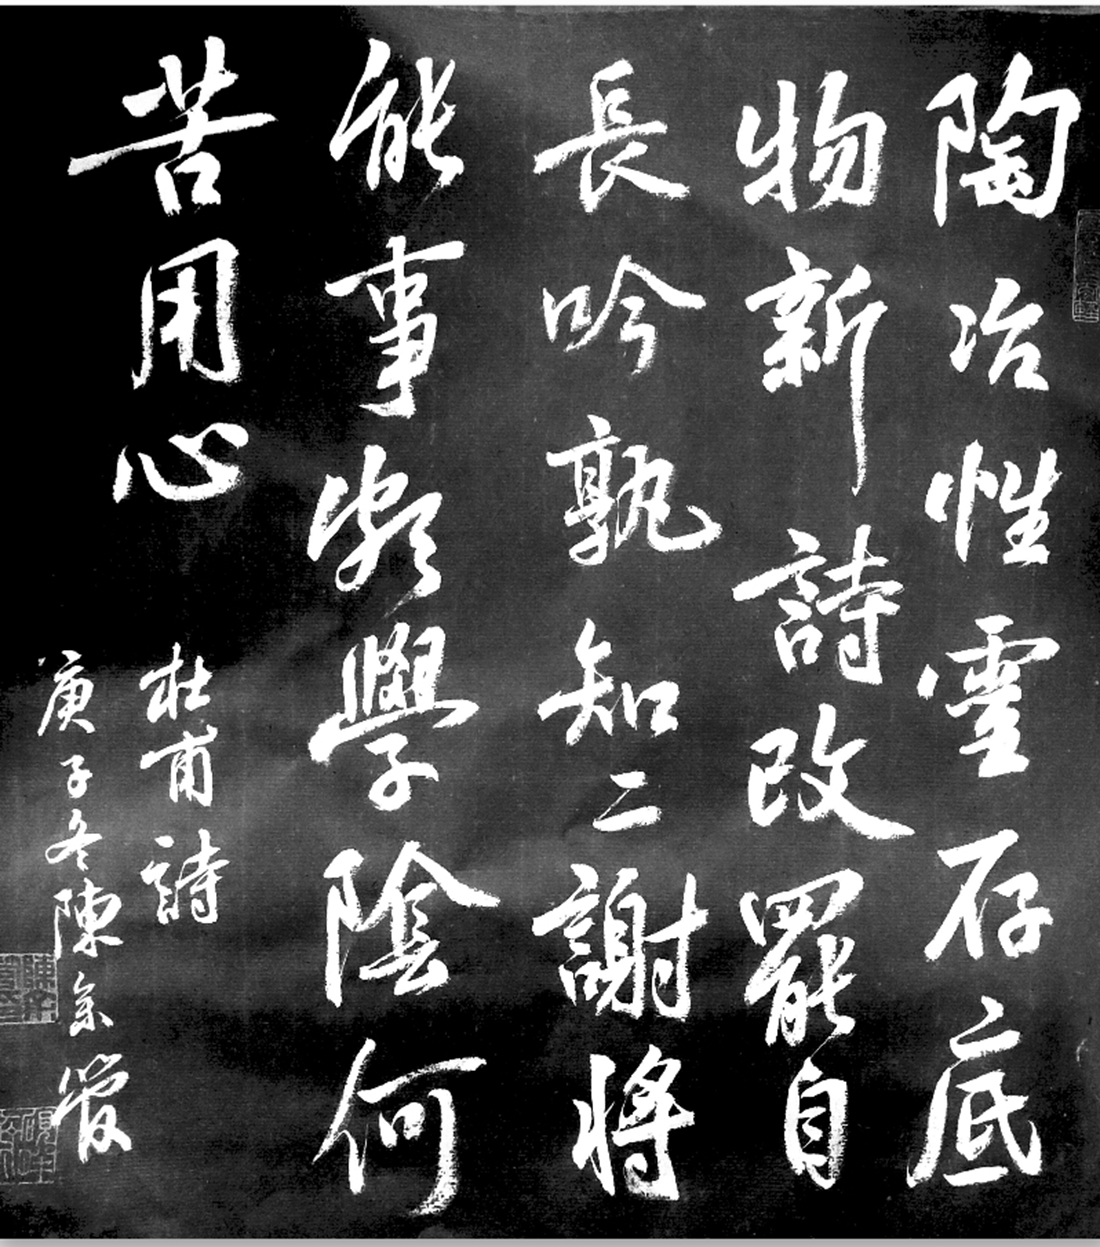 陶冶性靈存底
物新詩改罷自
長吟孰知二謝將
能事頗學陰何
苦用心
杜甫詩
庚子冬陳奕禧